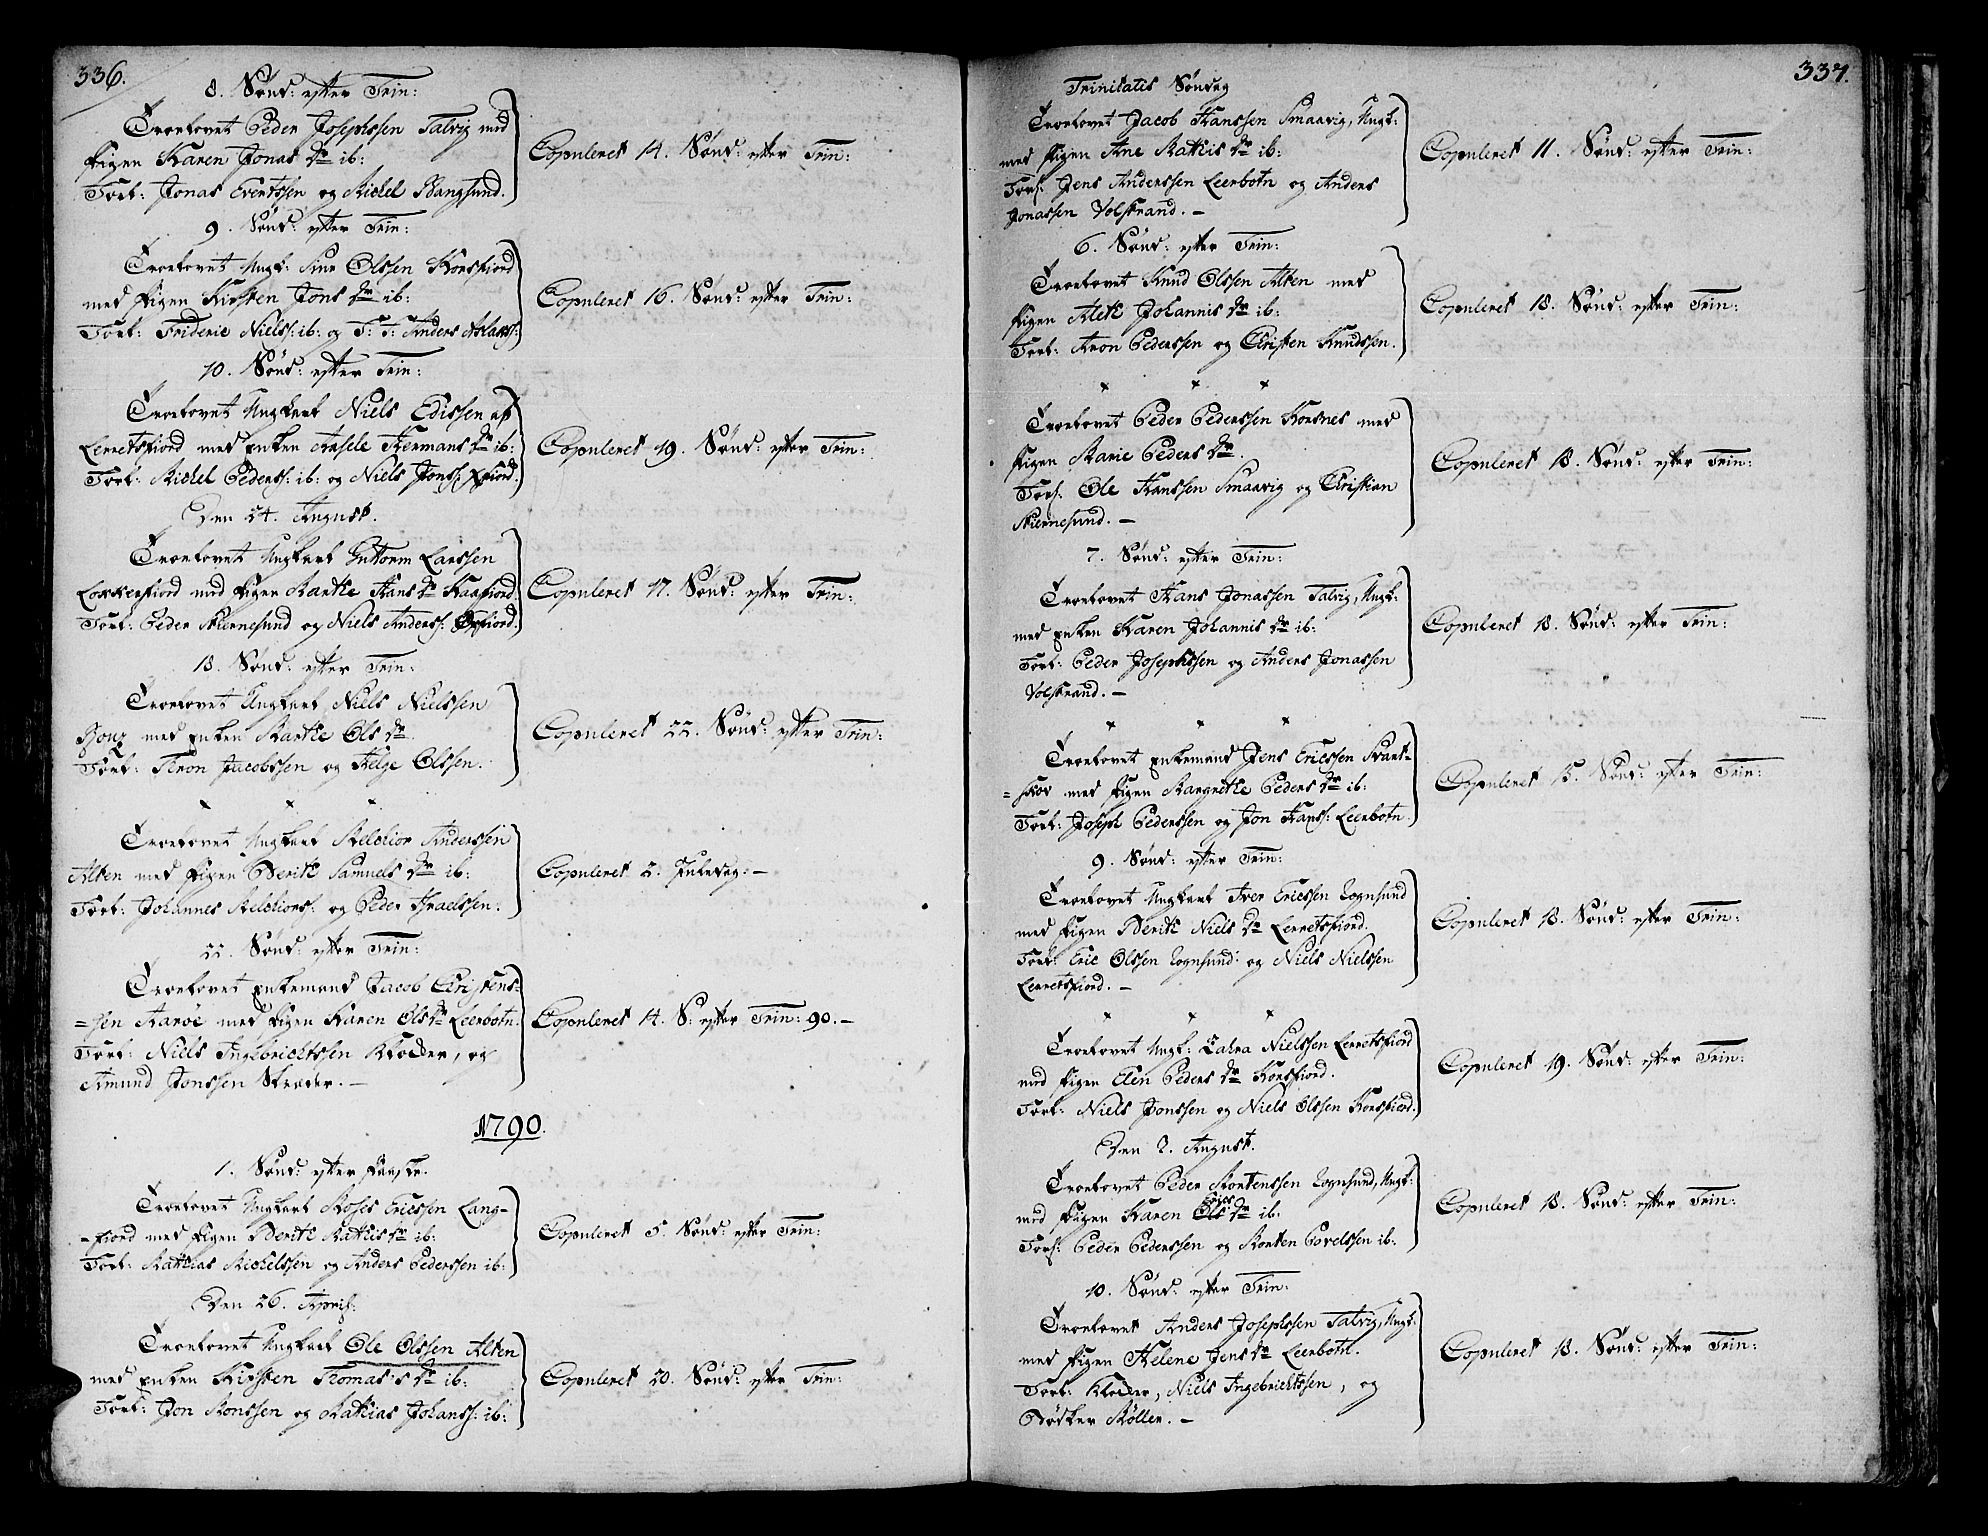 336.
8. Sønd: efter Trin:
Troelovet Peder Josephssen Talvig med
Pigen Karen Jonas Dr ib:
Forl: Jonas Evertssen og Michel Bangsund.
Copuleret 14. Sønd: efter Trin:
9. Sønd: efter Trin:
Troelovet Ungk: Siur Olssen Korsfiord
med Pigen Kirsten Jons Dr ib:
Forl: Frideric Nielss: ib: og T: T: Anders Aslaks:
Copuleret 16. Sønd: efter Trin:
10. Sønd: efter Trin:
Troelovet Ungkarl Niels Edissen af
Lerretsfiord med Enken Aasele Hermans Dr ib:
Forl: Michel Peders: ib: og Niels Jons:
Copuleret 19. Sønd: efter Trin:
Den 24. August.
Troelovet Ungkarl Guttorm Larssen
Lokkerfiord med Pigen Marthe Hans Dr Kaafiord.
Forl: Peder Stiernesund og Niels Anderss:
Copuleret 17. Sønd: efter Trin:
18. Sønd: efter Trin:
Troelovet Ungkarl Niels Nielssen
med Enken Marthe Ols Dr
Forl: Aron Jacobssen og Helge Olssen.
Copuleret 22. Sønd: efter Trin:
Troelovet Ungkarl Melchior Anderssen
Alten med Pigen Berith Samuels Dr ib:
Forl: Johannes Melchiors: og Peder Israelssen.
Copuleret 2. Juledag: —
22. Sønd: efter Trin:
Troelovet Enkemand Jacob Christens-
=sen Aarøe med Pigen Karen Ols Dr Leerbotn.
Forl: Niels Ingebrichtssen Klocker, og
Amund Jonssen Skræder. —
Copuleret 14. S: efter Trin: 90. —
1790.
1. Sønd: efter Paaske.
Troelovet Ungkarl Moses Ericssen Lang-
-fiord med Pigen Berith Mathis Dr ib:
Forl: Mathias Michelssen og Anders Pederssen ib:
Copuleret 5. Sønd: efter Trin:
Den 26. April:
Troelovet Ungkarl Ole Olssen Alten
med Enken Kirsten Thomas's Dr ib:
Forl: Jon Monssen og Mathias Johanss: ib:
Copuleret 20. Sønd: efter Trin:
337.
Trinitatis Søndag
Troelovet Jacob Hanssen Smaavig, Ungk:
med Pigen Ane Mathis Dr ib:
Forl: Jens Anderssen Leerbotn og Anders
Jonassen Volstrand. —
Copuleret 11. Sønd: efter Trin:
6. Sønd: efter Trin:
Troelovet Knud Olssen Alten med
Pigen Aleth Johannis Dr ib:
Forl: Aron Pederssen og Christen Knudssen.
Copuleret 18. Sønd: efter Trin:
Troelovet Peder Pederssen Korsnes med
Pigen Marie Peders Dr.
Forl: Ole Hanssen Smaavig og Christian
Stiernesund. —
Copuleret 13. Sønd: efter Trin:
7. Sønd: efter Trin:
Troelovet Hans Jonassen Talvig, Ungk:
med Enken Karen Johannis Dr ib:
Forl: Peder Josephssen og Anders Jonassen
Volstrand. —
Copuleret 18. Sønd: efter Trin:
Troelovet Enkemand Jens Ericssen Svart-
=skov med Pigen Margrethe Peders Dr ib:
Forl: Joseph Pederssen og Jon Hanss: Leerbotn.
Copuleret 15. Sønd: efter Trin:
9. Sønd: efter Trin:
Troelovet Ungkarl Iver Ericssen Rognsund
med Pigen Berith Niels Dr Lerretsfiord.
Forl: Eric Olssen Rognsund: og Niels Nielssen
Lerretsfiord. —
Copuleret 13. Sønd: efter Trin:
Troelovet Ungk: Nielssen Lerretsfiord
med Pigen Elen Peders Dr Korsfiord.
Forl: Niels Jonssen og Niels Olssen Korsfiord.
Copuleret 19. Sønd: efter Trin:
Den 2. August.
Troelovet Peder Mortenssen Rognsund, Ungk:
med Pigen Karen Ols Erics Dr ib:
Forl: Peder Pederssen og Morten Povelssen ib:
Copuleret 18. Sønd: efter Trin:
10. Sønd: efter Trin:
Troelovet Anders Josephssen Talvig, Ungk:
med Pigen Helene Jens Dr Leerbotn.
Forl: Klocker, Niels Ingebrichtssen, og
Bødker Møller. —
Copuleret 18. Sønd: efter Trin: